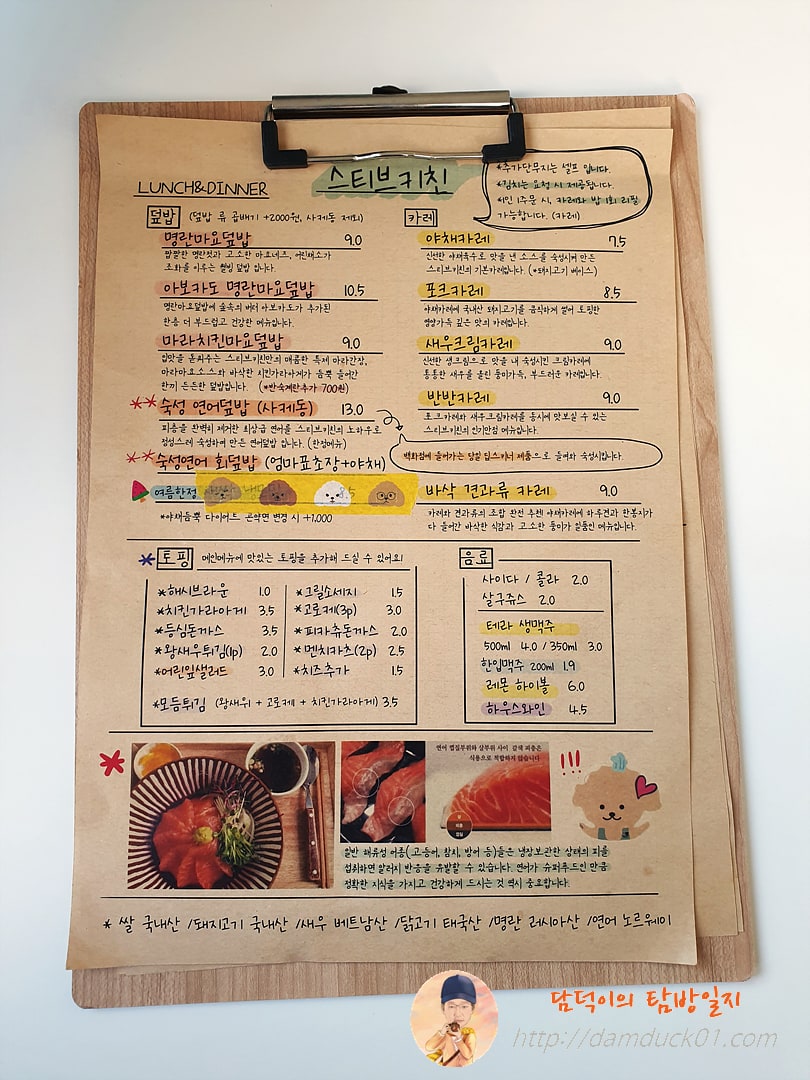 스티브키친
LUNCH&DINNER
*추가단무지는 셀프 입니다.
*김치는 요청 시 제공됩니다.
*1인 1주문 시, 카레와 밥 1회 리필
가능합니다. (카레)
덮밥 (덮밥 류 곱배기 +2000원, 사케동 제외)
명란마요덮밥 9.0
짭짤한 명란젓과 고소한 마요네즈, 어린채소가
조화를 이루는 웰빙 덮밥 입니다.
아보카도 명란마요덮밥 10.5
명란마요덮밥에 숲속의 버터 아보카도가 추가된
한층 더 부드럽고 건강한 메뉴입니다.
마라치킨마요덮밥 9.0
입맛을 돋워주는 스티브키친만의 매콤한 특제 마라간장,
마라마요소스와 바삭한 치킨가라아게가 듬뿍 들어간
한끼 든든한 덮밥입니다. (*반숙계란추가 700원)
**숙성 연어덮밥 (사케동) 13.0
피층을 완벽히 제거한 최상급 연어를 스티브키친의 노하우로
정성스레 숙성하여 만든 연어덮밥 입니다. (한정메뉴)
**숙성연어 회덮밥 (엄마표초장+야채)
여름한정 8.5
*야채듬뿍 다이어트 곤약면 변경 시 +1,000
카레
야채카레 7.5
신선한 야채육수로 맛을 낸 소스를 숙성시켜 만든
스티브키친의 기본카레입니다. (*돼지고기 베이스)
포크카레 8.5
야채카레에 국내산 돼지고기를 큼직하게 썰어 토핑한
영양가득 깊은 맛의 카레입니다.
새우크림카레 9.0
신선한 생크림으로 맛을 내 숙성시킨 크림카레에
통통한 새우를 올린 풍미가득, 부드러운 카레입니다.
반반카레 9.0
포크카레와 새우크림카레를 동시에 맛보실 수 있는
스티브키친의 인기만점 메뉴입니다.
백화점에 들어가는 당일 딥스키너 제품으로 들여와 숙성시킵니다.
바삭 견과류 카레 9.0
카레와 견과류의 조합 완전 추천! 야채카레에 하루견과 한봉지가
다 들어간 바삭한 식감과 고소한 풍미가 일품인 메뉴입니다.
*토핑 메인메뉴에 맛있는 토핑을 추가해 드실 수 있어요!
*해시브라운 1.0
*치킨가라아게 3.5
*등심돈까스 3.5
*왕새우튀김(1p) 2.0
*어린잎샐러드 3.0
*그릴소세지 1.5
*고로케(3p) 3.0
*피카츄돈까스 2.0
*멘치카츠(2p) 2.5
*치즈추가 1.5
*모듬튀김 (왕새우 + 고로케 + 치킨가라아게) 3.5
음료
사이다 / 콜라 2.0
살구쥬스 2.0
테라 생맥주
500ml 4.0 / 350ml 3.0
한입맥주 200ml 1.9
레몬 하이볼 6.0
하우스와인 4.5
연어 껍질부위와 살부위 사이 갈색 피층은
식용으로 적합하지 않습니다
!!!
일반 해류성 어종(고등어, 참치, 방어 등)들은 냉장보관한 상태의 피를
섭취하면 알러지 반응을 유발할 수 있습니다. 연어가 슈퍼푸드인 만큼
정확한 지식을 가지고 건강하게 드시는 것 역시 중요합니다.
* 쌀 국내산 /돼지고기 국내산 /새우 베트남산 /닭고기 태국산 /명란 러시아산 /연어 노르웨이
담덕이의 탐방일지
http://damduck01.com